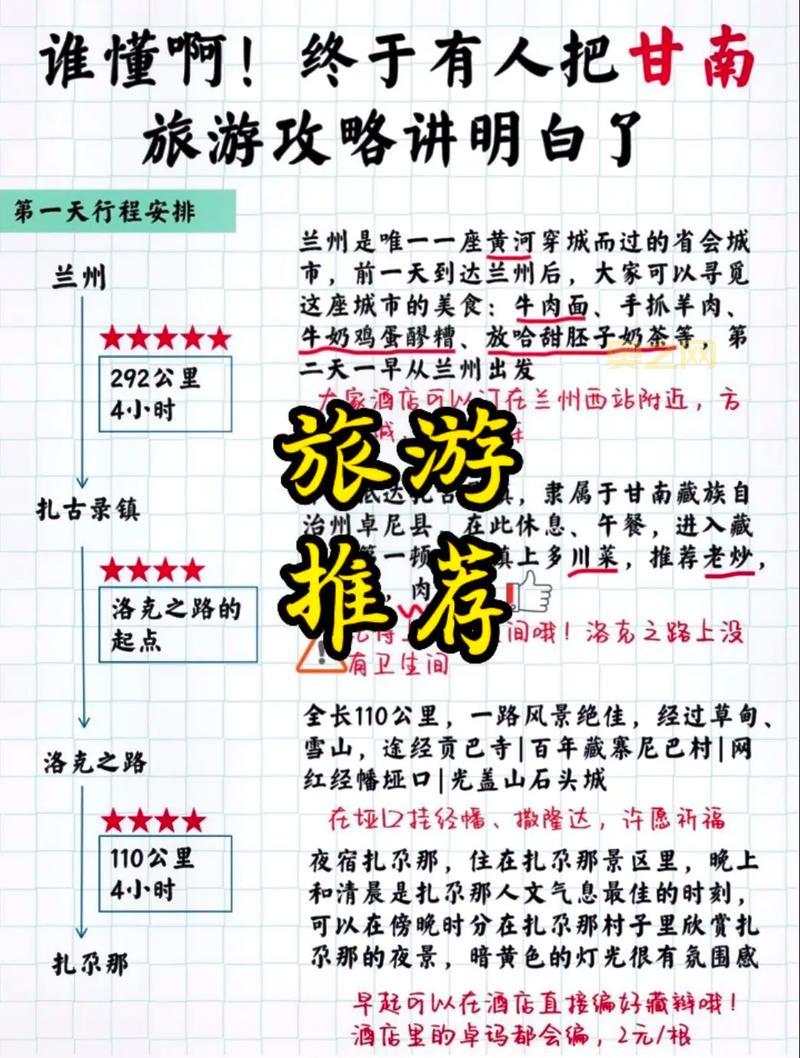 谁懂啊！终于有人把甘南
旅游攻略讲明白了
第一天行程安排
兰州
★★★★★
292公里
4小时
扎古录镇
★★★★
洛克之路的
起点
洛克之路
★★★★
110公里
4小时
扎尕那
兰州是唯一一座黄河穿城而过的省会城
市，前一天到达兰州后，大家可以寻觅
这座城市的美食：牛肉面、手抓羊肉、
牛奶鸡蛋醪糟、放哈甜胚子奶茶等，第
二天一早从兰州出发
大家酒店可以订在兰州西站附近，方
旅游
推荐
镇，隶属于甘南藏族自
治州卓尼县 在此休息、午餐，进入藏
第一顿 镇上多川菜，推荐老炒，
，肉
间哦！洛克之路上没
有卫生间
全长110公里，一路风景绝佳，经过草甸、
雪山，途经贡巴寺|百年藏寨尼巴村|网
红经幡垭口|光盖山石头城
在垭口挂经幡、撒隆达，许愿祈福
夜宿扎尕那，住在扎尕那景区里，晚上
和清晨是扎尕那人文气息最佳的时刻，
可以在傍晚时分在扎尕那村子里欣赏扎
尕那的夜景，暗黄色的灯光很有氛围感
早起可以在酒店直接编好藏辫哦！
酒店里的卓玛都会编，2元/根